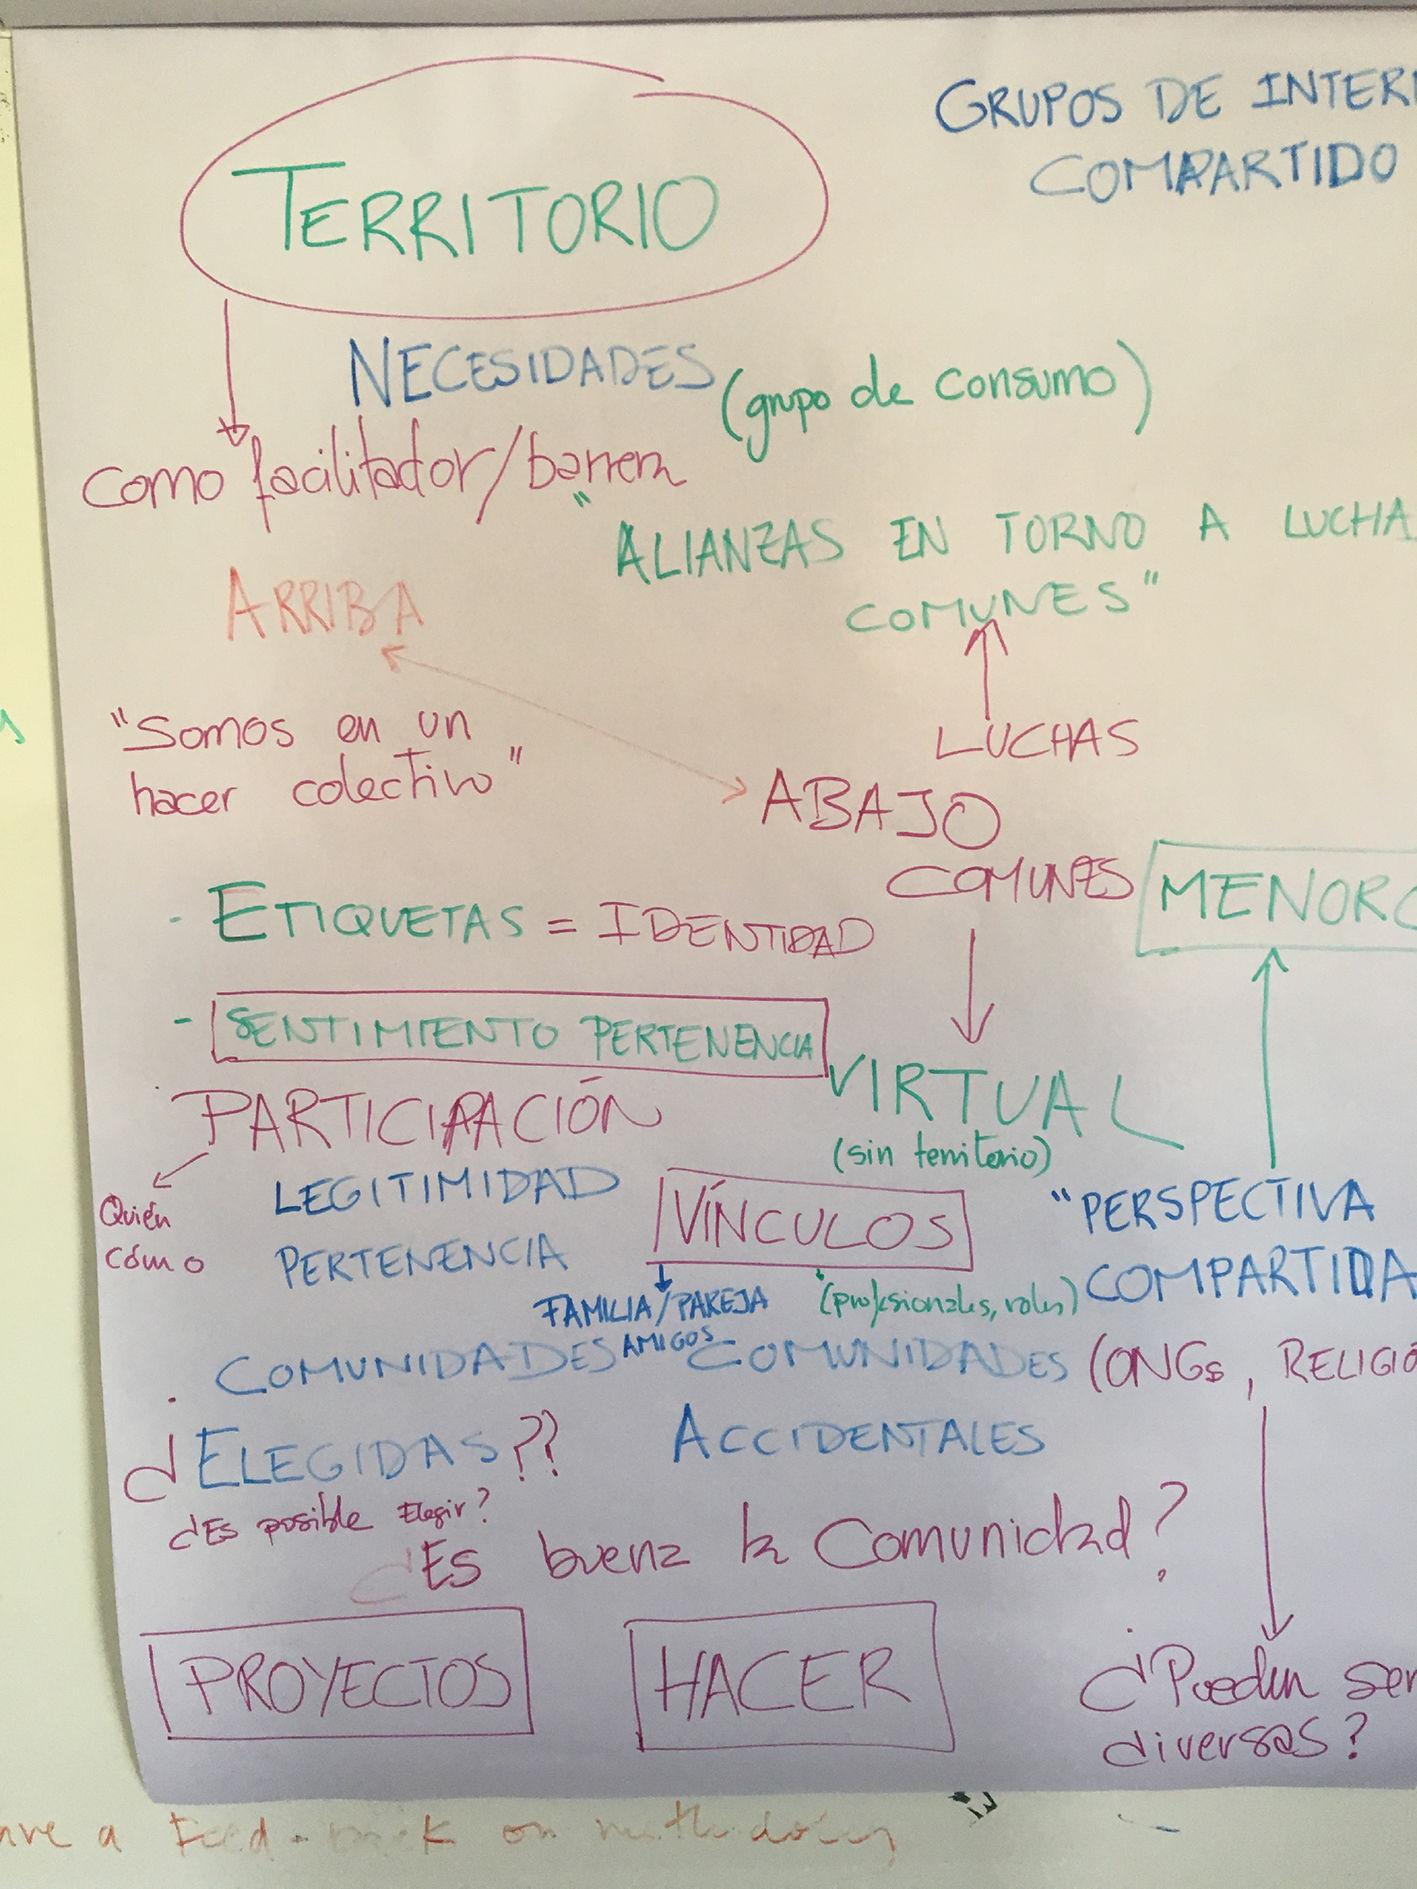 GRUPOS DE INTER
COMPARTIDO
TERRITORIO
NECESIDADES (grupo de consumo)
como facilitador/barrera
"ALIANZAS EN TORNO A LUCHA
COMUNES"
ARRIBA
"Somos en un
hacer colectivo"
LUCHAS
ABAJO
COMUNES
MENORC
- ETIQUETAS = IDENTIDAD
- SENTIMIENTO PERTENENCIA
VIRTUAL
(sin territorio)
PARTICIPACIÓN
Quién
cómo
LEGITIMIDAD
PERTENENCIA
VÍNCULOS
"PERSPECTIVA
COMPARTIDA
FAMILIA/PAREJA
AMIGOS
(profesionales, roles)
COMUNIDADES COMUNIDADES (ONGs, RELIGIÓ
¿ELEGIDAS?? ACCIDENTALES
¿Es posible Elegir?
¿Es buena la Comunidad?
PROYECTOS HACER
¿Pueden ser
diversas?
ave a Feed-back on